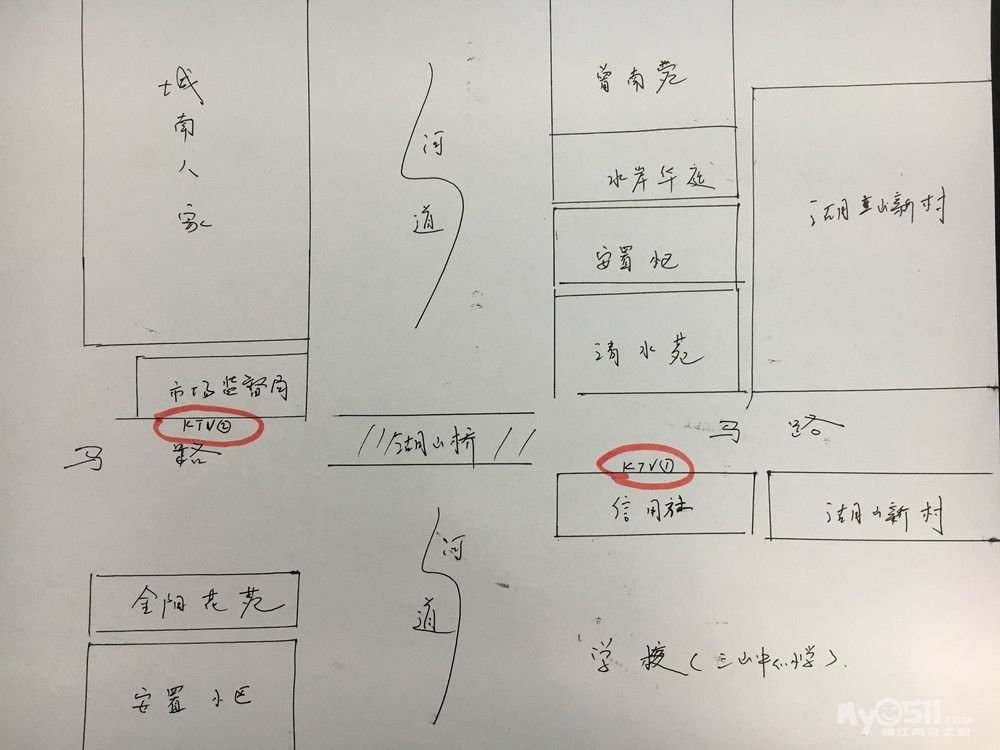 城南人家
曾南苑
河道
水岸华庭
湖山新村
安置小区
清水苑
市场监督局
KTV②
马路
湖山桥
马路
KTV①
信用社
湖山新村
河道
金阳花苑
学校(三山中心小学).
安置小区
My0511.com